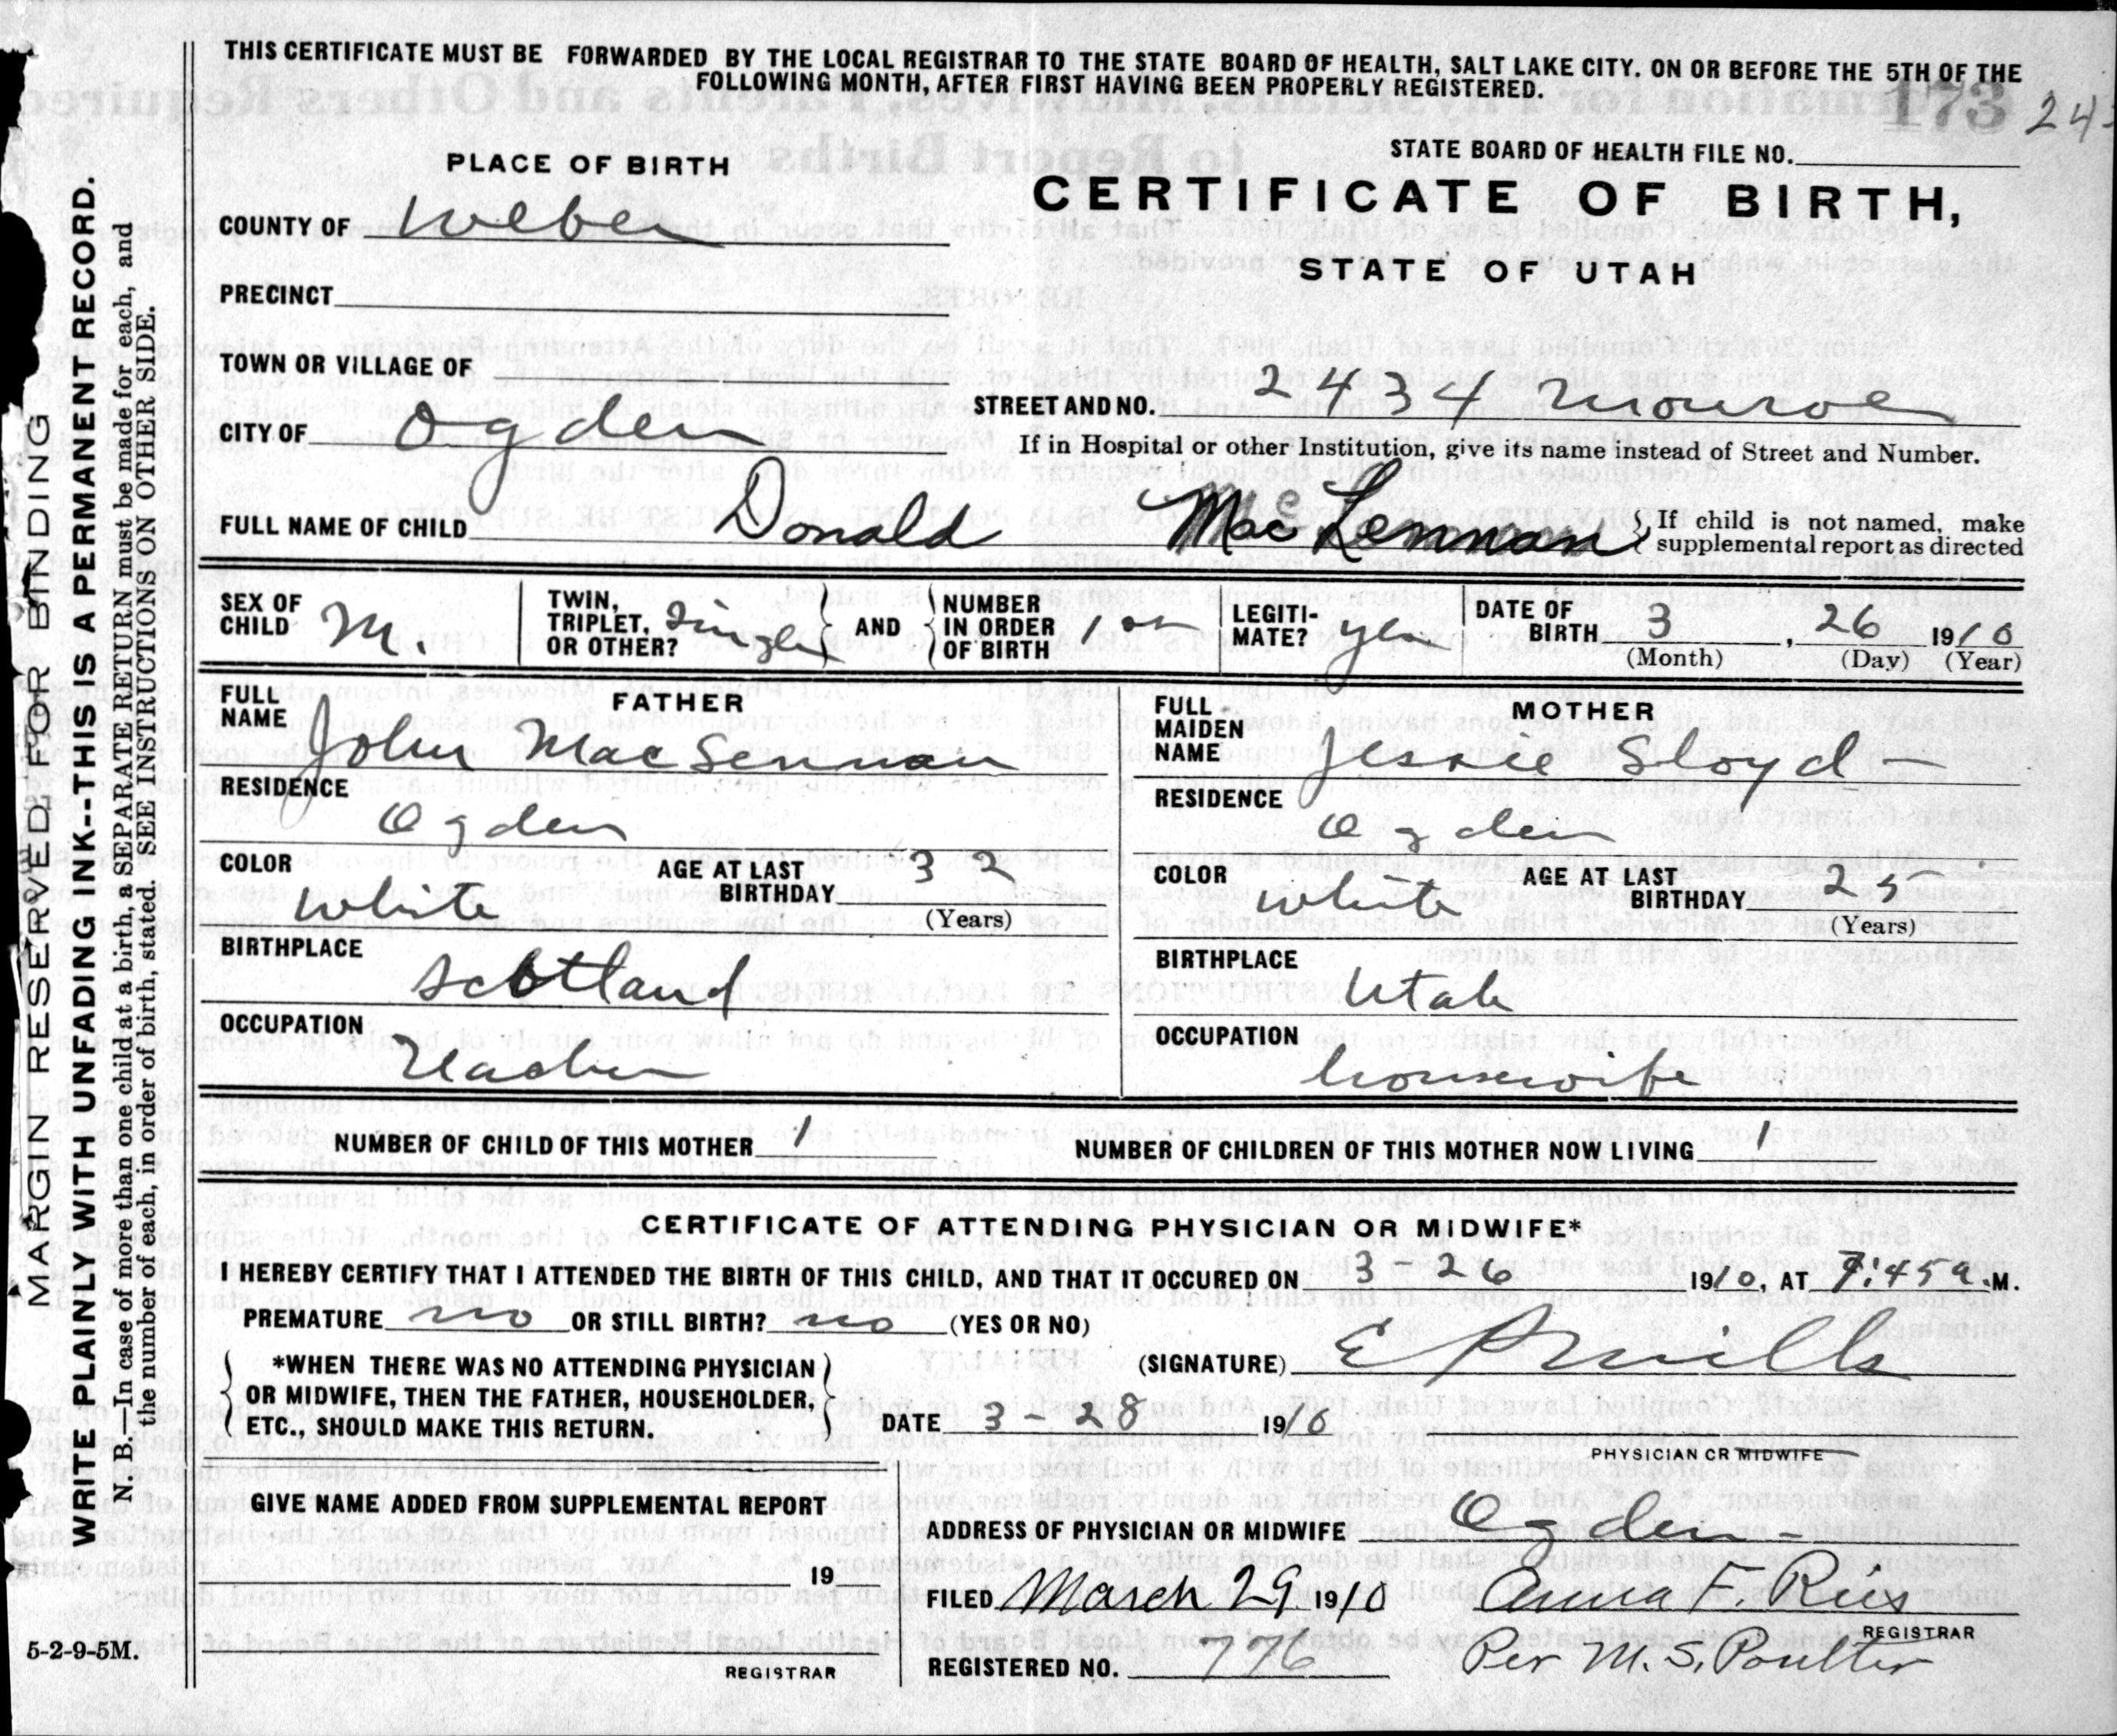 THIS CERTIFICATE MUST BE FORWARDED BY THE LOCAL REGISTRAR TO THE STATE BOARD OF HEALTH, SALT LAKE CITY. ON OR BEFORE THE 5TH OF THE
FOLLOWING MONTH, AFTER FIRST HAVING BEEN PROPERLY REGISTERED.
173 243
PLACE OF BIRTH
STATE BOARD OF HEALTH FILE NO.
CERTIFICATE OF BIRTH,
COUNTY OF Weber
STATE OF UTAH
PRECINCT
TOWN OR VILLAGE OF
STREET AND NO. 2434 Monroe
CITY OF Ogden
If in Hospital or other Institution, give its name instead of Street and Number.
FULL NAME OF CHILD Donald MacLennan
If child is not named, make
supplemental report as directed
SEX OF CHILD M.
TWIN, TRIPLET, OR OTHER? Single
AND NUMBER IN ORDER OF BIRTH 1
LEGITI-MATE? yes
DATE OF BIRTH 3, 26 1910
(Month) (Day) (Year)
FATHER
FULL NAME John MacLennan
RESIDENCE
Ogden
COLOR white AGE AT LAST BIRTHDAY 32
(Years)
BIRTHPLACE
Scotland
OCCUPATION
Teacher
MOTHER
FULL MAIDEN NAME Jessie Lloyd
RESIDENCE
Ogden
COLOR white AGE AT LAST BIRTHDAY 25
(Years)
BIRTHPLACE
Utah
OCCUPATION
housewife
NUMBER OF CHILD OF THIS MOTHER 1 NUMBER OF CHILDREN OF THIS MOTHER NOW LIVING 1
CERTIFICATE OF ATTENDING PHYSICIAN OR MIDWIFE*
I HEREBY CERTIFY THAT I ATTENDED THE BIRTH OF THIS CHILD, AND THAT IT OCCURED ON 3 26 1910, AT 7:45 a.M.
PREMATURE no OR STILL BIRTH? no (YES OR NO)
*WHEN THERE WAS NO ATTENDING PHYSICIAN
OR MIDWIFE, THEN THE FATHER, HOUSEHOLDER,
ETC., SHOULD MAKE THIS RETURN.
(SIGNATURE) E P Mills
DATE 3-28 1910
PHYSICIAN OR MIDWIFE
GIVE NAME ADDED FROM SUPPLEMENTAL REPORT
19
REGISTRAR
ADDRESS OF PHYSICIAN OR MIDWIFE Ogden
FILED March 29 1910 Emma F. Ries
REGISTRAR
REGISTERED NO. 776 Per M. S. Poulter
MARGIN RESERVED FOR BINDING
WRITE PLAINLY WITH UNFADING INK--THIS IS A PERMANENT RECORD.
N. B.—In case of more than one child at a birth, a SEPARATE RETURN must be made for each, and
the number of each, in order of birth, stated. SEE INSTRUCTIONS ON OTHER SIDE.
5-2-9-5M.